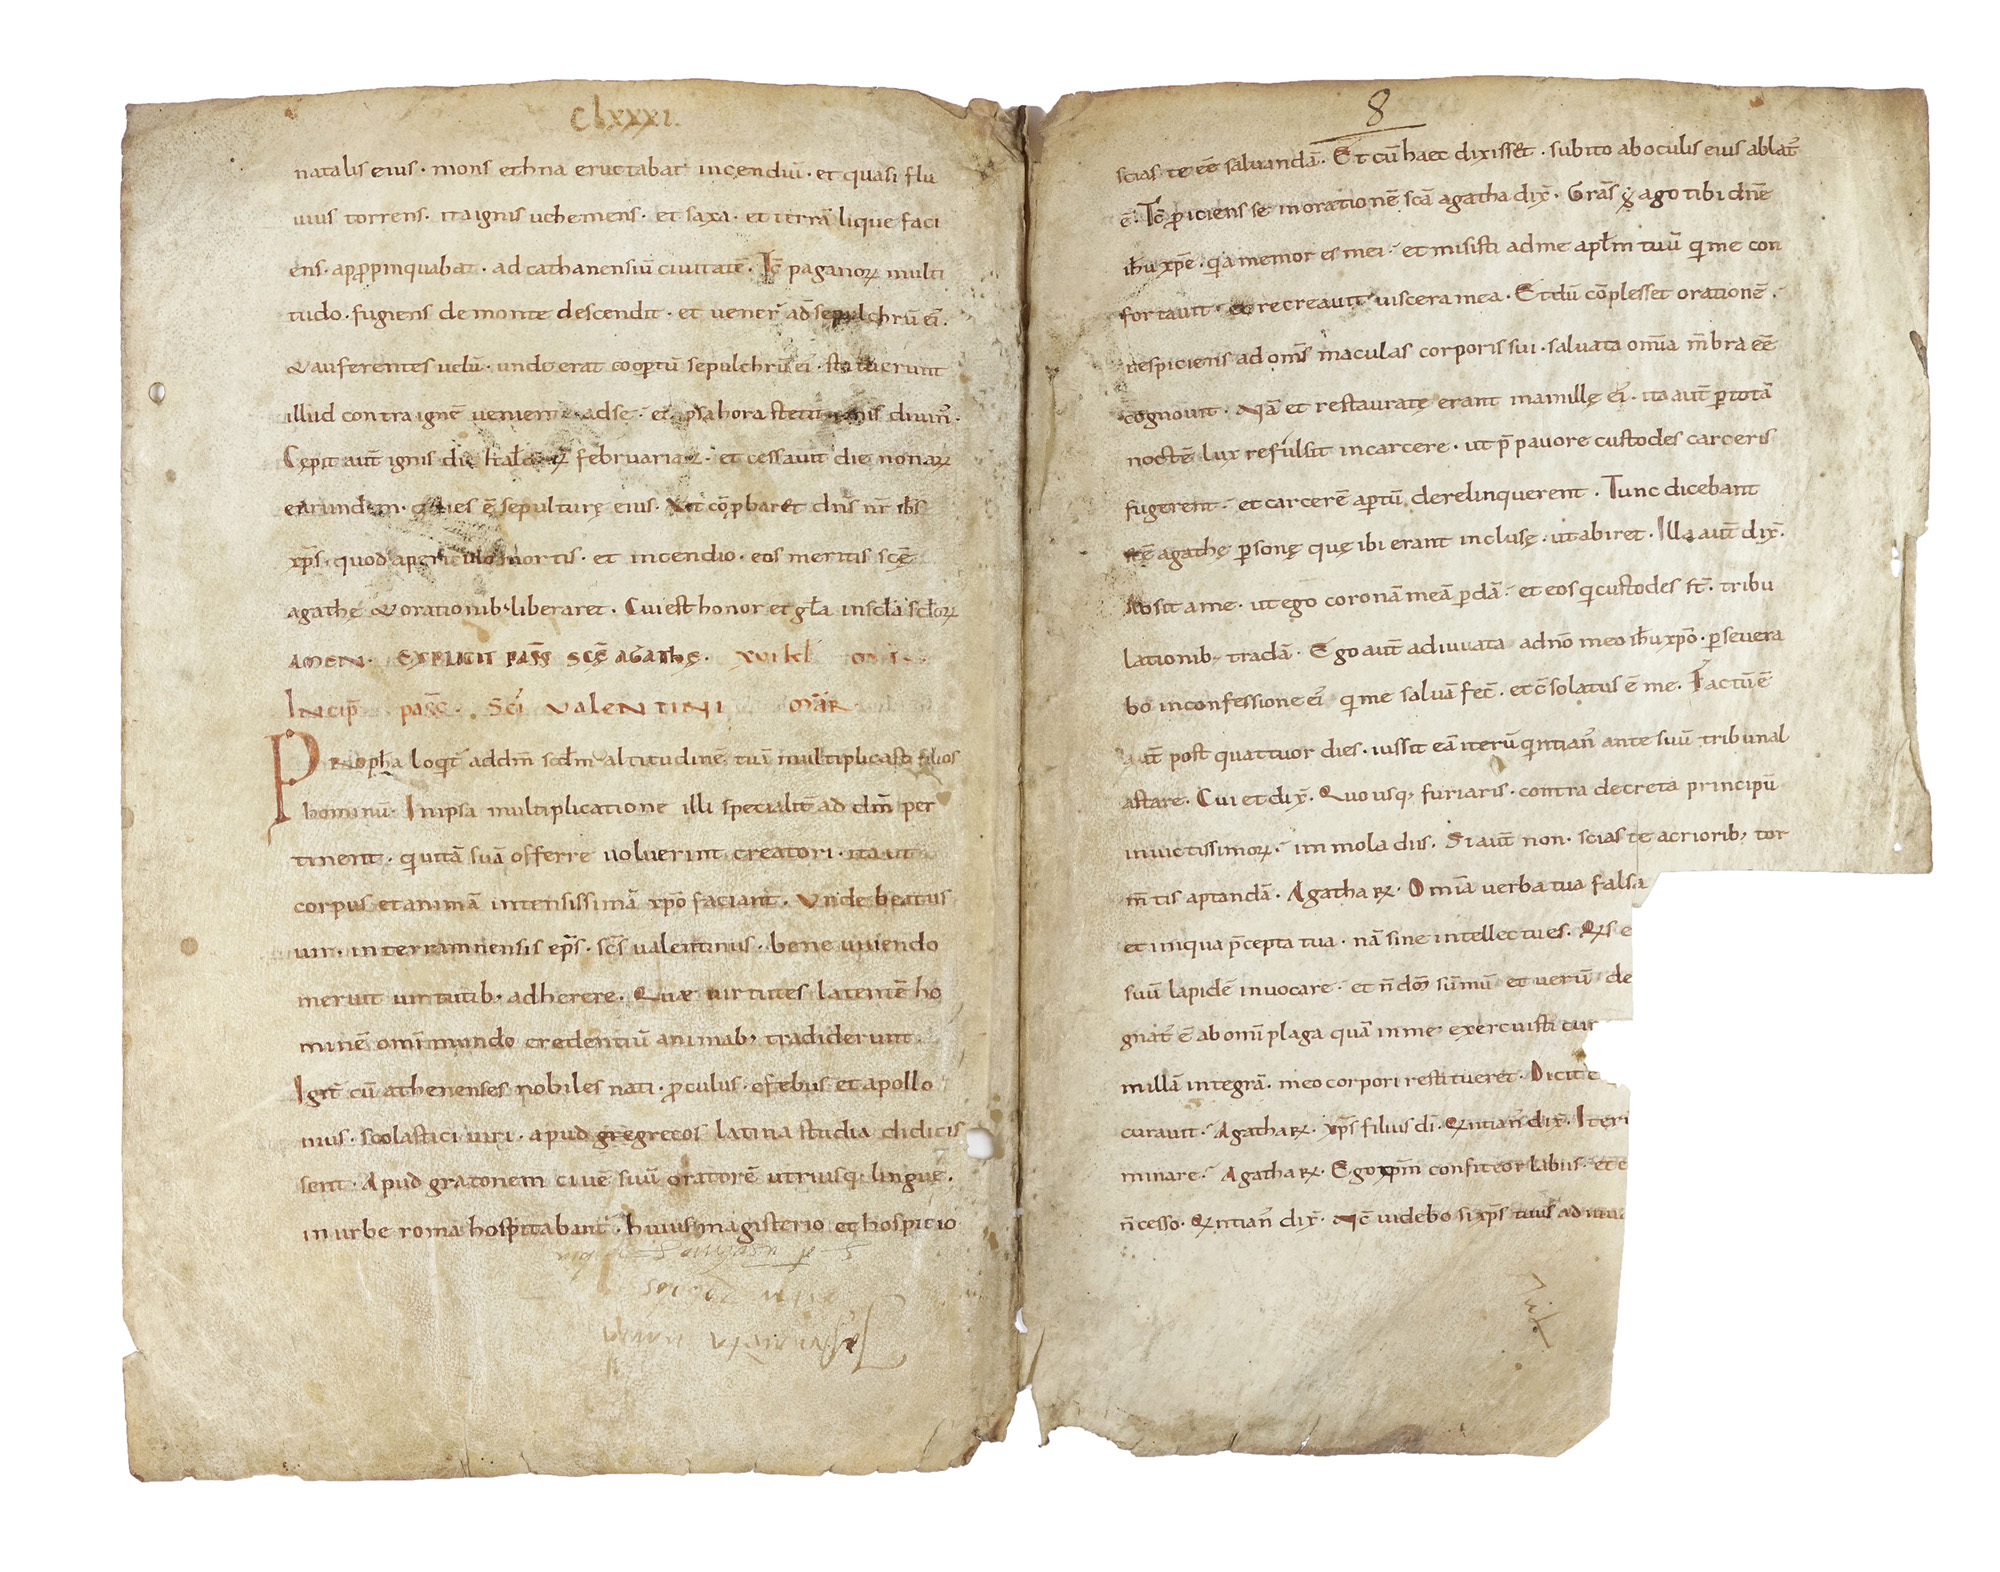 CLXXXI.
natalis eius · mons ethna eructabat incendiū · et quasi flu
uius torrens · ita ignis uehemens · et saxa · et terrā lique faci
ens · apꝓpinquabat · ad cathanensiū ciuitatē · Tc̄ paganoꝝ multi
tudo · fugiens de monte descendit · et uener̄ ad sepulchrū ei᾿ ·
& auferentes uelū · unde erat coop̱tū sepulchrū ei᾿ · statuerunt
illud contra ignē uenientē ad se · et ipsa hora stetit ignis diuin᾿ ·
Cępit aut̄ ignis die kalendaꝝ februariaꝝ · et cessauit die nonaꝝ
earundem · dies ē sepulturę eius · Ut cōꝓbaret dn̄s nr̄ ih̄s
xp̄s · quod a periculo mortis · et incendio · eos meritis scę̄
agathę & orationib; liberaret · Cui est honor et gl̄a in scl̄a scl̄oꝝ
AMEN · EXPLICIT PASS̄ SCĘ̄ AGATHĘ · XVI kł
INCIP̄ PASS̄ · SCI᾿ VALENTINI MAR̄
PROph̄a loqit᾿ ad dm̄ scd̄m altitudinē tuā multiplicasti filios
hominū · In ipsa multiplicatione illi specialit̄ ad dm̄ per
tinent · qui uitā suā offerre uoluerint creatori · ita ut
corpus et animā intensissimā xp̄o faciant · Unde beatus
uir · interamnensis ep̄s · sc̄s ualentinus · bene uiuendo
meruit uirtutib; adherere · Quae uirtutes latentē ho
minē omī mundo credentiū animab; tradiderunt ·
Igit᾿ cū athenenses nobiles nati · ꝓculus · efebus et apollo
nius · scolastici uiri · apud gregrecos latina studia didicis
sent · Apud gratonem ciuē suū oratorē utriusq; linguę ·
in urbe roma hospitabant᾿ · huius magisterio et hospitio
8
scias te eē̄ saluandā · Et cū haec dixisset · subito ab oculis eius ablat᾿
ē · Tc̄ ꝓiciens se in orationē scā agatha dix̄ · Grās ago tibi dn̄e
ih̄u xp̄e · qa memor es mei · et misisti ad me apl̄m tuū qi me con
fortauit · et recreauit uiscera mea · Et dū cōplesset orationē ·
respiciens ad om̄s maculas corporis sui · saluata omīa mēbra eē̄
cognouit · Nā et restauratę erant mamillę ei᾿ · ita aut̄ ꝑ totā
noctē lux refulsit in carcere · ut p̄ pauore custodes carceris
fugerent · et carcerē aꝑtū derelinquerent · Tunc dicebant
scę̄ agathę ꝑsonę quę ibi erant inclusę · ut abiret · Illa aut̄ dix̄ ·
Absit a me · ut ego coronā meā ꝑdā · et eos qi custodes st̄ · tribu
lationib; tradā · Ego aut̄ adiuuata a dn̄o meo ih̄u xp̄o · ꝑseuera
bo in confessione ei᾿ qi me saluā fec̄ · et c̄solatus ē me · Factū ē
aut̄ post quattuor dies · iussit eā iterū qintian᾿ ante suū tribunal
astare · Cui et dix̄ · Quo usq; furiaris · contra decreta principū
inuictissimoꝝ · immola diis · Si aut̄ non · scias te acriorib; tor
m̄tis aptandā · Agatha ꝶ · Omīa uerba tua falsa
et iniqua p̄cepta tua · nā sine intellectu es · Qis e
suū lapidē inuocare · et n̄ dm̄ sūmū et uerū de
gnat᾿ ē ab omī plaga quā in me exercuisti cur
millā integrā · meo corpori restitueret · Dicit
curauit · Agatha ꝶ · xp̄s filius di᾿ · Qintian᾿ dix̄ · Iter
minare · Agatha ꝶ · Ego xp̄m confiteor labiis · et c
n̄ cesso · Qintian᾿ dix̄ · Nc̄ uidebo si xp̄s tuus ad